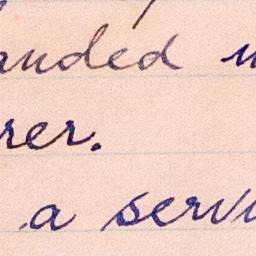 anded
rer.
a servi